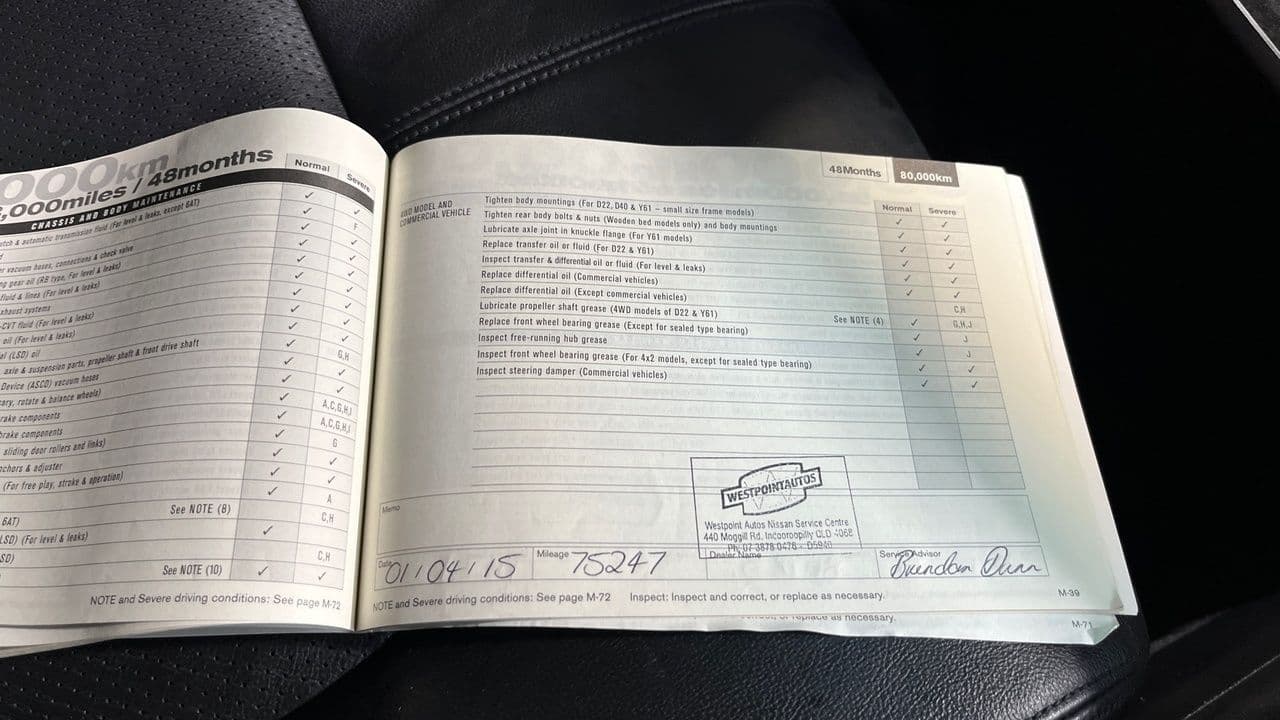 000km
,000miles / 48months
Normal
Severe
CHASSIS AND BODY MAINTENANCE
& automatic transmission fluid (For level & leaks, except 6AT)
✓ ✓
✓ F
vacuum hoses, connections & check valve
✓ ✓
gear oil (RB type, For level & leaks)
✓ ✓
fluid & lines (For level & leaks)
✓ ✓
exhaust systems
✓ ✓
CVT fluid (For level & leaks)
✓ ✓
oil (For level & leaks)
✓ ✓
(LSD) oil
✓ G,H
axle & suspension parts, propeller shaft & front drive shaft
✓ ✓
Device (ASCD) vacuum hoses
✓ ✓
rotate & balance wheels)
✓ A,C,G,H,I
brake components
✓ A,C,G,H,I
brake components
✓ G
sliding door rollers and links)
✓ ✓
anchors & adjuster
✓ ✓
(For free play, stroke & operation)
✓ A
See NOTE (8)
C,H
6AT)
LSD) (For level & leaks)
✓
C,H
See NOTE (10)
✓ ✓
NOTE and Severe driving conditions: See page M-72
48Months 80,000km
4WD MODEL AND
COMMERCIAL VEHICLE
Normal Severe
Tighten body mountings (For D22, D40 & Y61 – small size frame models) ✓ ✓
Tighten rear body bolts & nuts (Wooden bed models only) and body mountings ✓ ✓
Lubricate axle joint in knuckle flange (For Y61 models) ✓ ✓
Replace transfer oil or fluid (For D22 & Y61) ✓ ✓
Inspect transfer & differential oil or fluid (For level & leaks) ✓ ✓
Replace differential oil (Commercial vehicles) ✓ ✓
Replace differential oil (Except commercial vehicles) C,H
Lubricate propeller shaft grease (4WD models of D22 & Y61) See NOTE (4) ✓ G,H,J
Replace front wheel bearing grease (Except for sealed type bearing) ✓ J
Inspect free-running hub grease ✓ J
Inspect front wheel bearing grease (For 4x2 models, except for sealed type bearing) ✓ ✓
Inspect steering damper (Commercial vehicles) ✓ ✓
Memo
WESTPOINTAUTOS
Westpoint Autos Nissan Service Centre
440 Moggill Rd. Indooroopilly QLD 4068
Ph: 07 3878 0476 - D5940
Date 01/04/15 Mileage 75247 Dealer Name Service Advisor Brendan Dunn
NOTE and Severe driving conditions: See page M-72 Inspect: Inspect and correct, or replace as necessary. M-39
or replace as necessary. M-71